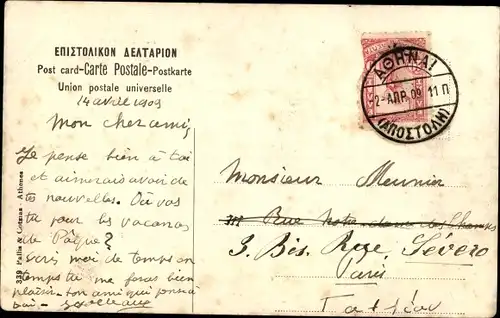 ΕΠΙΣΤΟΛΙΚΟΝ ΔΕΛΤΑΡΙΟΝ
Post card-Carte Postale-Postkarte
Union postale universelle
14 avril 1909
Mon cher ami,
Je pense bien à toi
et aimerais avoir de
tes nouvelles. Où vas
tu pour les vacances
de Pâque?
Ecris moi de temps en
temps tu me feras bien
plaisir - ton ami qui pense à
toi -
339 Pallis & Cotzias - Athènes
ΑΘΗΝΑΙ
2-ΑΠΡ. 09 11 Π
(ΑΠΟΣΤΟΛΗ)
Monsieur Meunier
Rue Notre dame des Champs
3 Bis Rue Severo
Paris